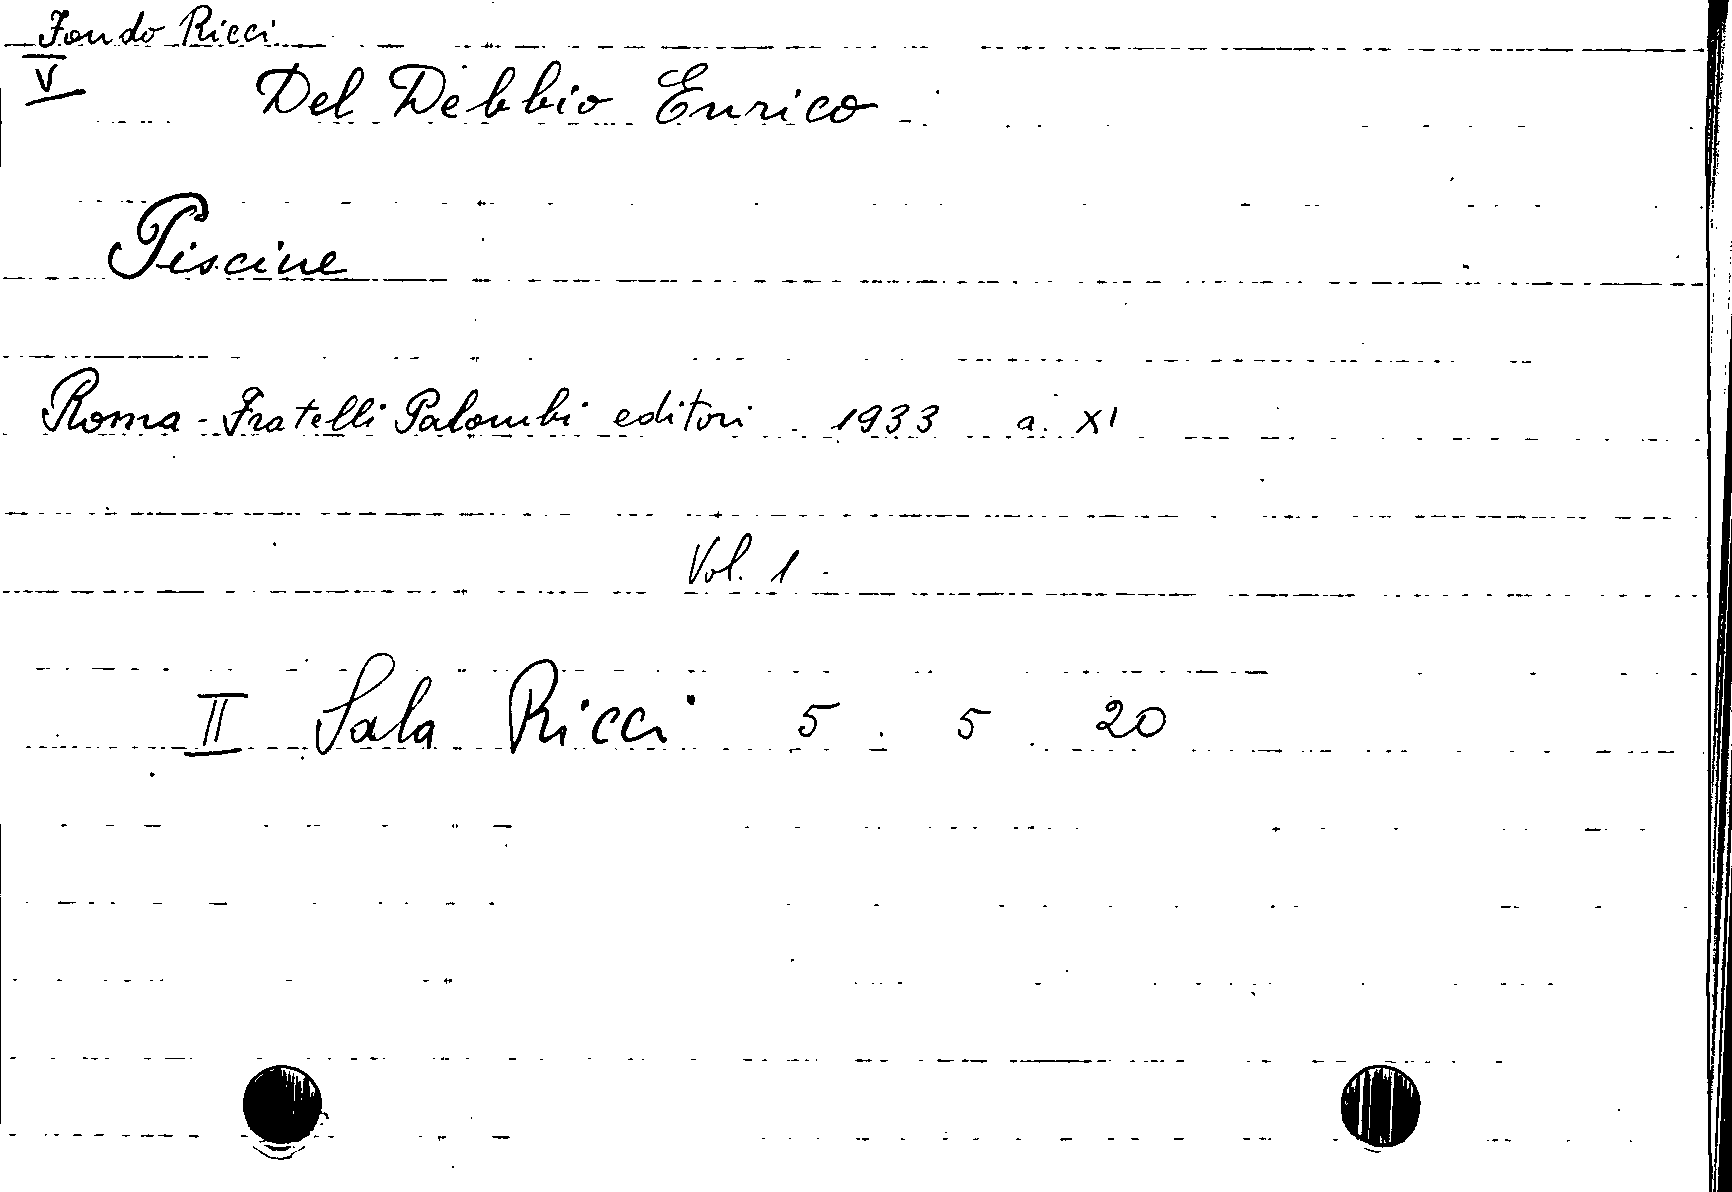 Fondo Ricci
V
Del Debbio Enrico
Piscine
Roma - Fratelli Palombi editori 1933 a. XI
Vol. 1
II Sala Ricci 5 5 20